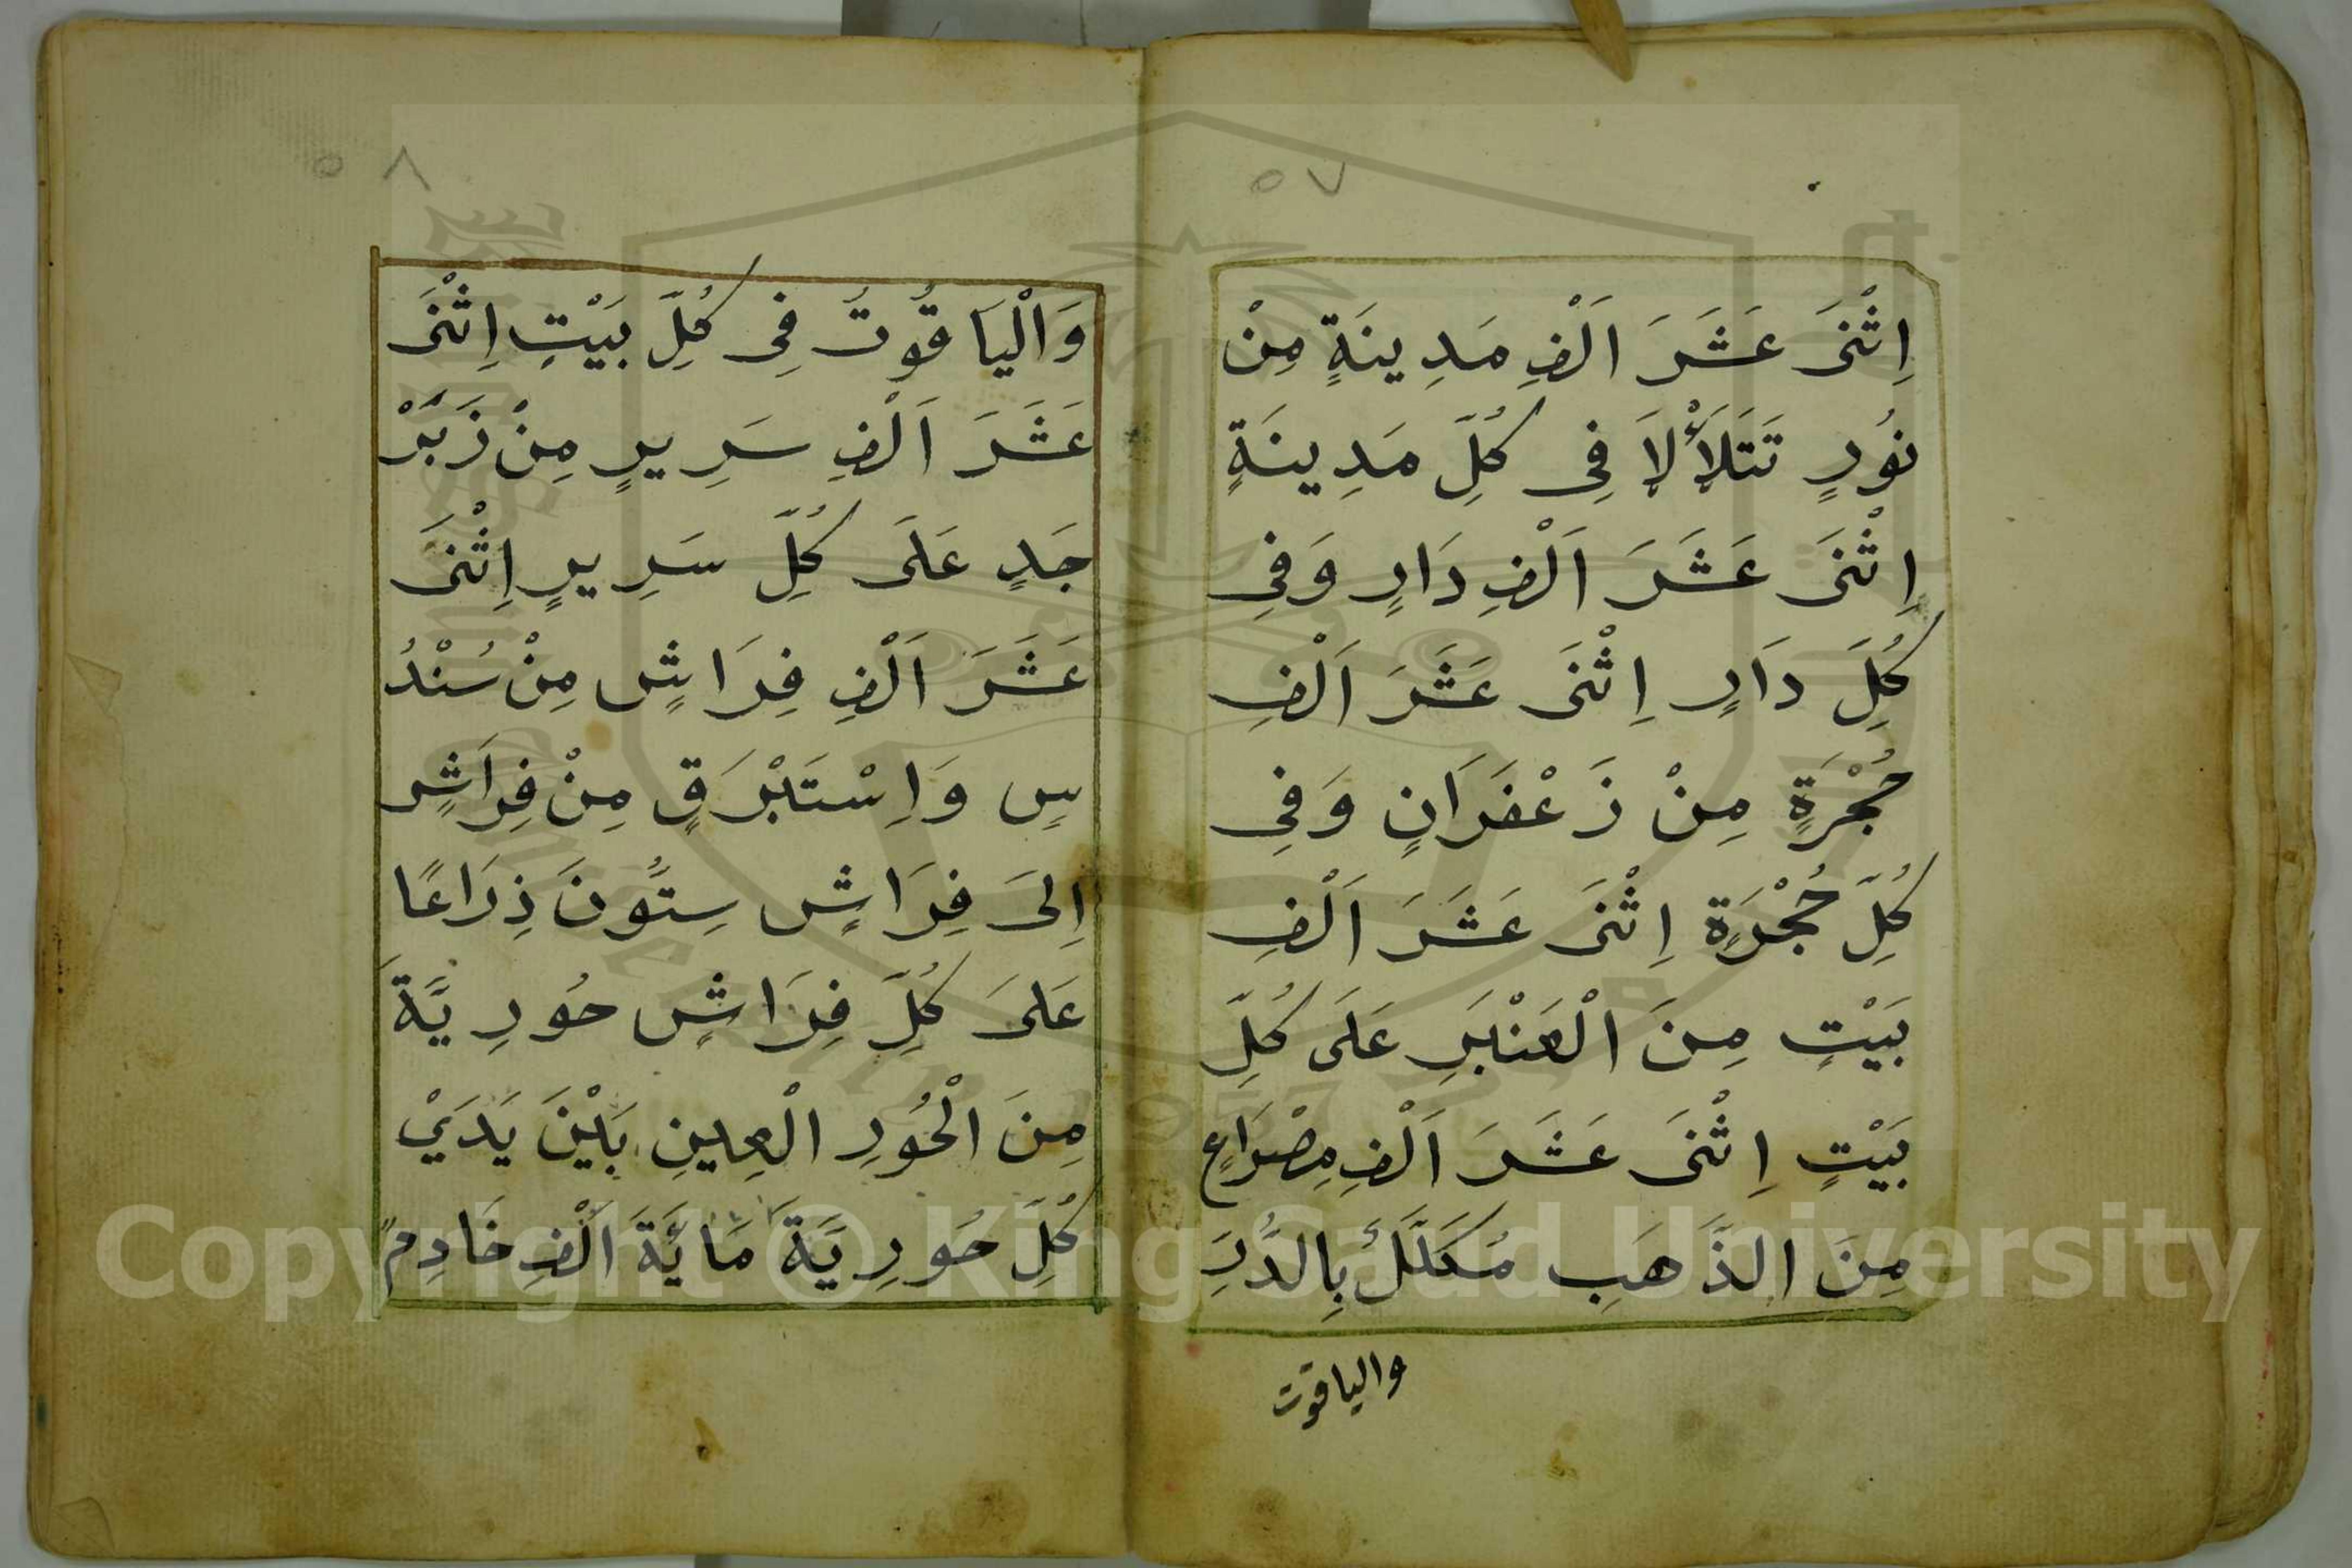 ٥٧
اِثْنَىْ عَشَرَ اَلْفِ مَدِينَةٍ مِنْ
نُورٍ تَتَلَأْلَاَ فِى كُلِّ مَدِينَةٍ
اِثْنَىْ عَشَرَ اَلْفِ دَارٍ وَفِى
كُلِّ دَارٍ اِثْنَىْ عَشَرَ اَلْفِ
حُجْرَةٍ مِنْ زَعْفَرَانٍ وَفِى
كُلِّ حُجْرَةٍ اِثْنَىْ عَشَرَ اَلْفِ
بَيْتٍ مِنَ الْعَنْبَرِ عَلَى كُلِّ
بَيْتٍ اِثْنَىْ عَشَرَ اَلْفِ مِصْرَاعٍ
مِنَ الذَّهَبِ مُكَلَّلُ بِالدُّرِّ
والياقوت
٥٨
وَالْيَاقُوتُ فِى كُلِّ بَيْتٍ اِثْنَىْ
عَشَرَ اَلْفِ سَرِيرٍ مِنْ زَبَرْ
جَدٍ عَلَى كُلِّ سَرِيرٍ اِثْنَىْ
عَشَرَ اَلْفِ فِرَاشٍ مِنْ سُنْدُ
سٍ وَاِسْتَبْرَقٍ مِنْ فِرَاشٍ
اِلَى فِرَاشٍ سِتُّونَ ذِرَاعًا
عَلَى كُلِّ فِرَاشٍ حُورِيَّةَ
مِنَ الْحُورِ الْعِينِ بَيْنَ يَدَيْ
كُلِّ حُورِيَّةَ مَايَّةَ اَلْفِ خَادِمٍ
Copyright © King Saud University